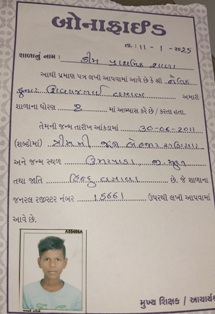 બોનાફાઈડ
તા: ૧૧-૧-૨૦૨૫
શાળાનું નામ : પ્રાથમિક શાળા
આથી પ્રમાણ પત્ર લખી આપવામાં આવે છે કે શ્રી
કુમાર અમારી
શાળાના ધોરણ 8 માં અભ્યાસ કરે છે / કરતા હતા.
તેમની જન્મ તારીખ આંકડામાં 30-06-2011
(શબ્દોમાં) ત્રીસમી જૂન બે હજાર અગિયાર
અને જન્મ સ્થળ ઉમરપાડા, જી. સુરત
તથા જાતિ હિન્દુ વસાવા છે. જે શાળાના
જનરલ રજીસ્ટર નંબર 15661 ઉપરથી લખી આપવામાં
આવે છે.
મુખ્ય શિક્ષક / આચાર્ય